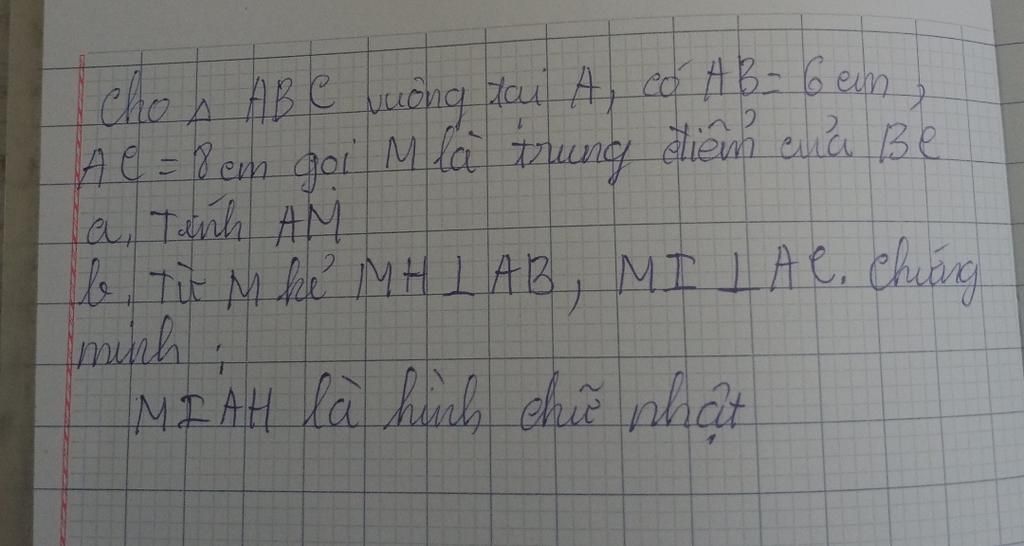 Cho △ ABC vuông tại A, có AB = 6 cm,
AC = 8 cm gọi M là trung điểm của BC
a, Tính AM
b, Từ M kẻ MH ⊥ AB, MI ⊥ AC. Chứng
minh :
MIAH là hình chữ nhật